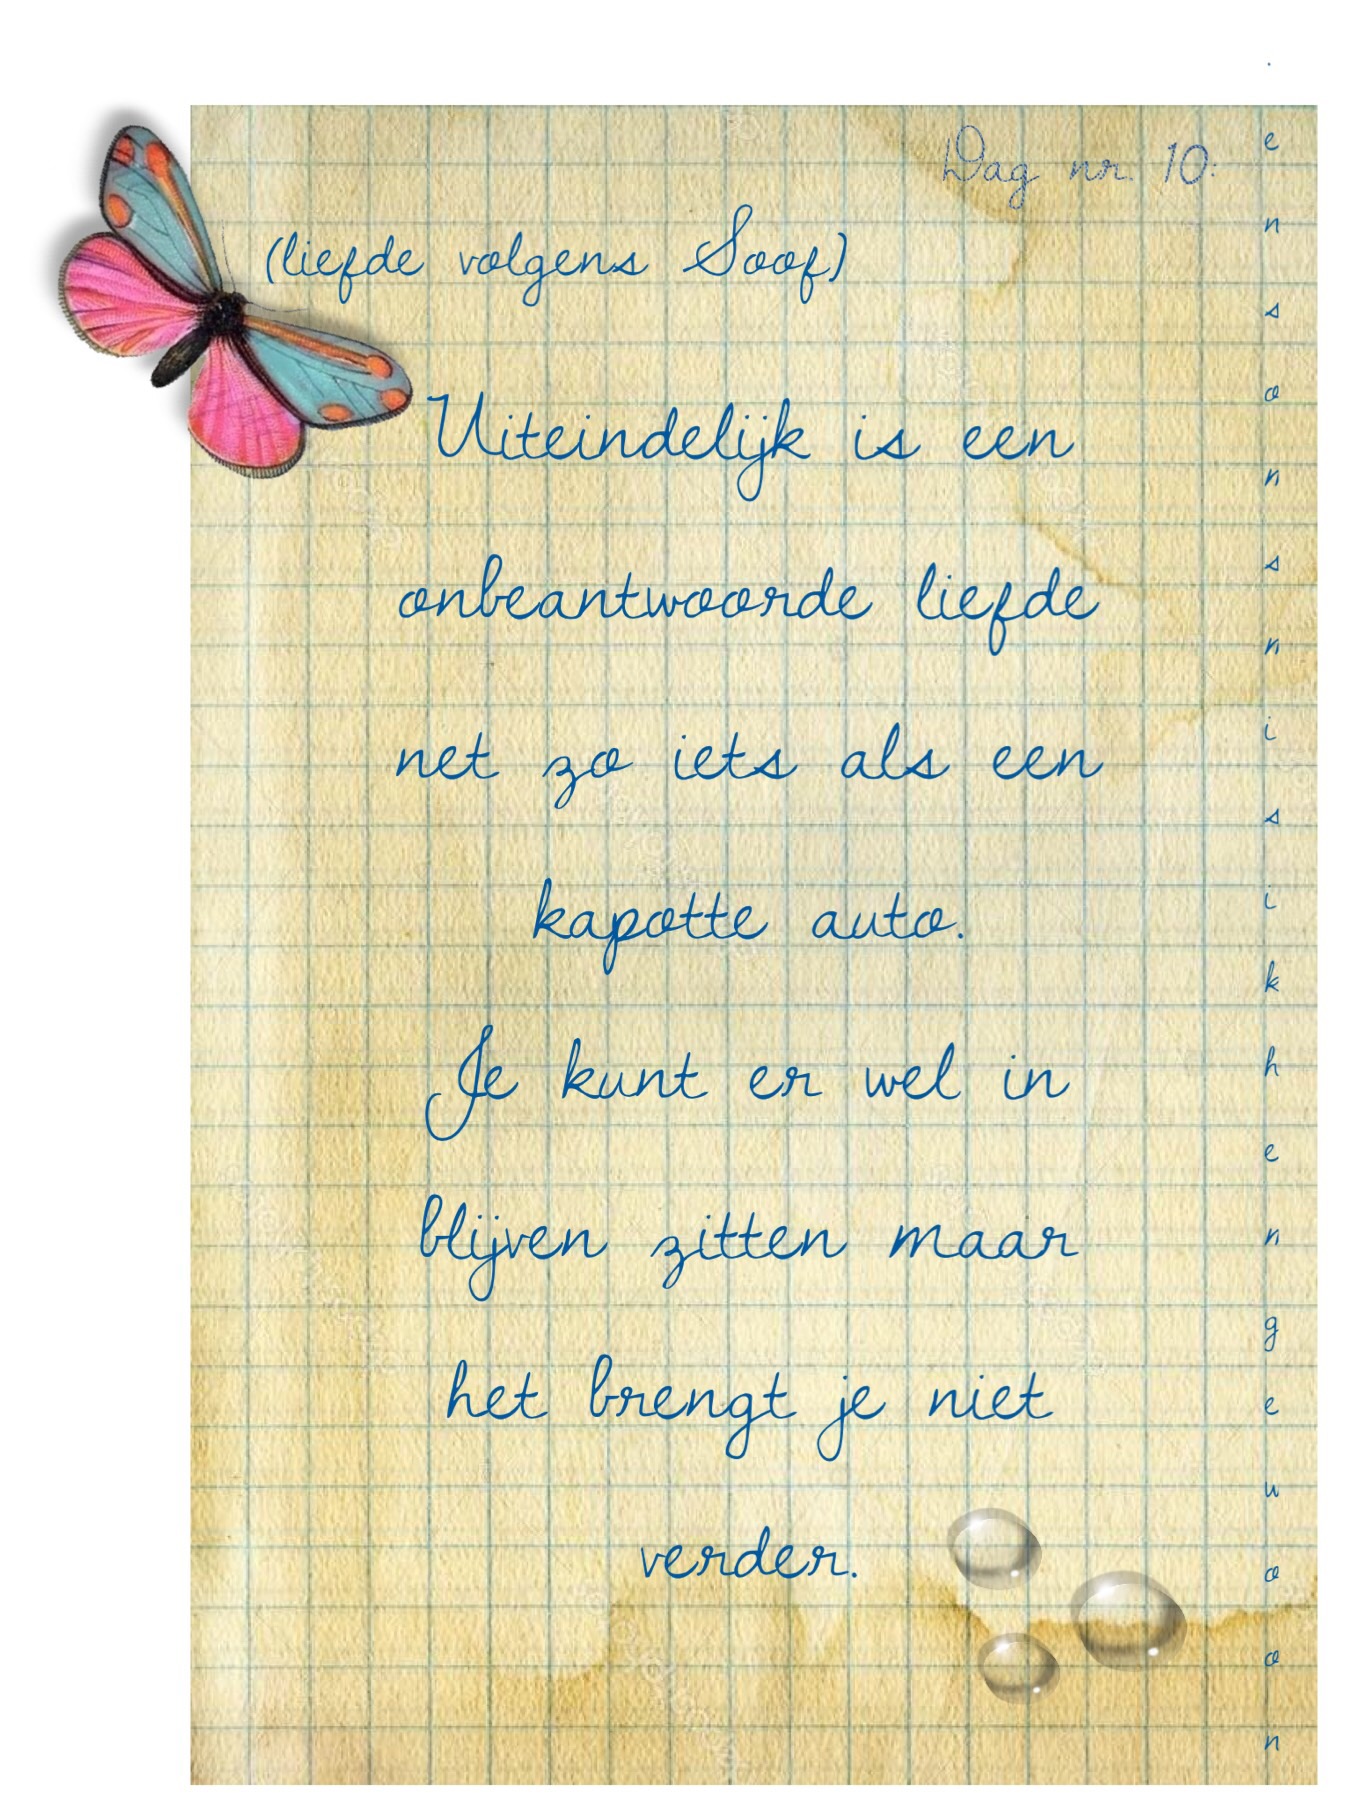 Dag nr. 10.
(liefde volgens Soof)
Uiteindelijk is een
onbeantwoorde liefde
net zo iets als een
kapotte auto.
Je kunt er wel in
blijven zitten maar
het brengt je niet
verder.
e
n
s
o
n
s
n
i
s
i
k
h
e
n
g
e
u
o
o
n